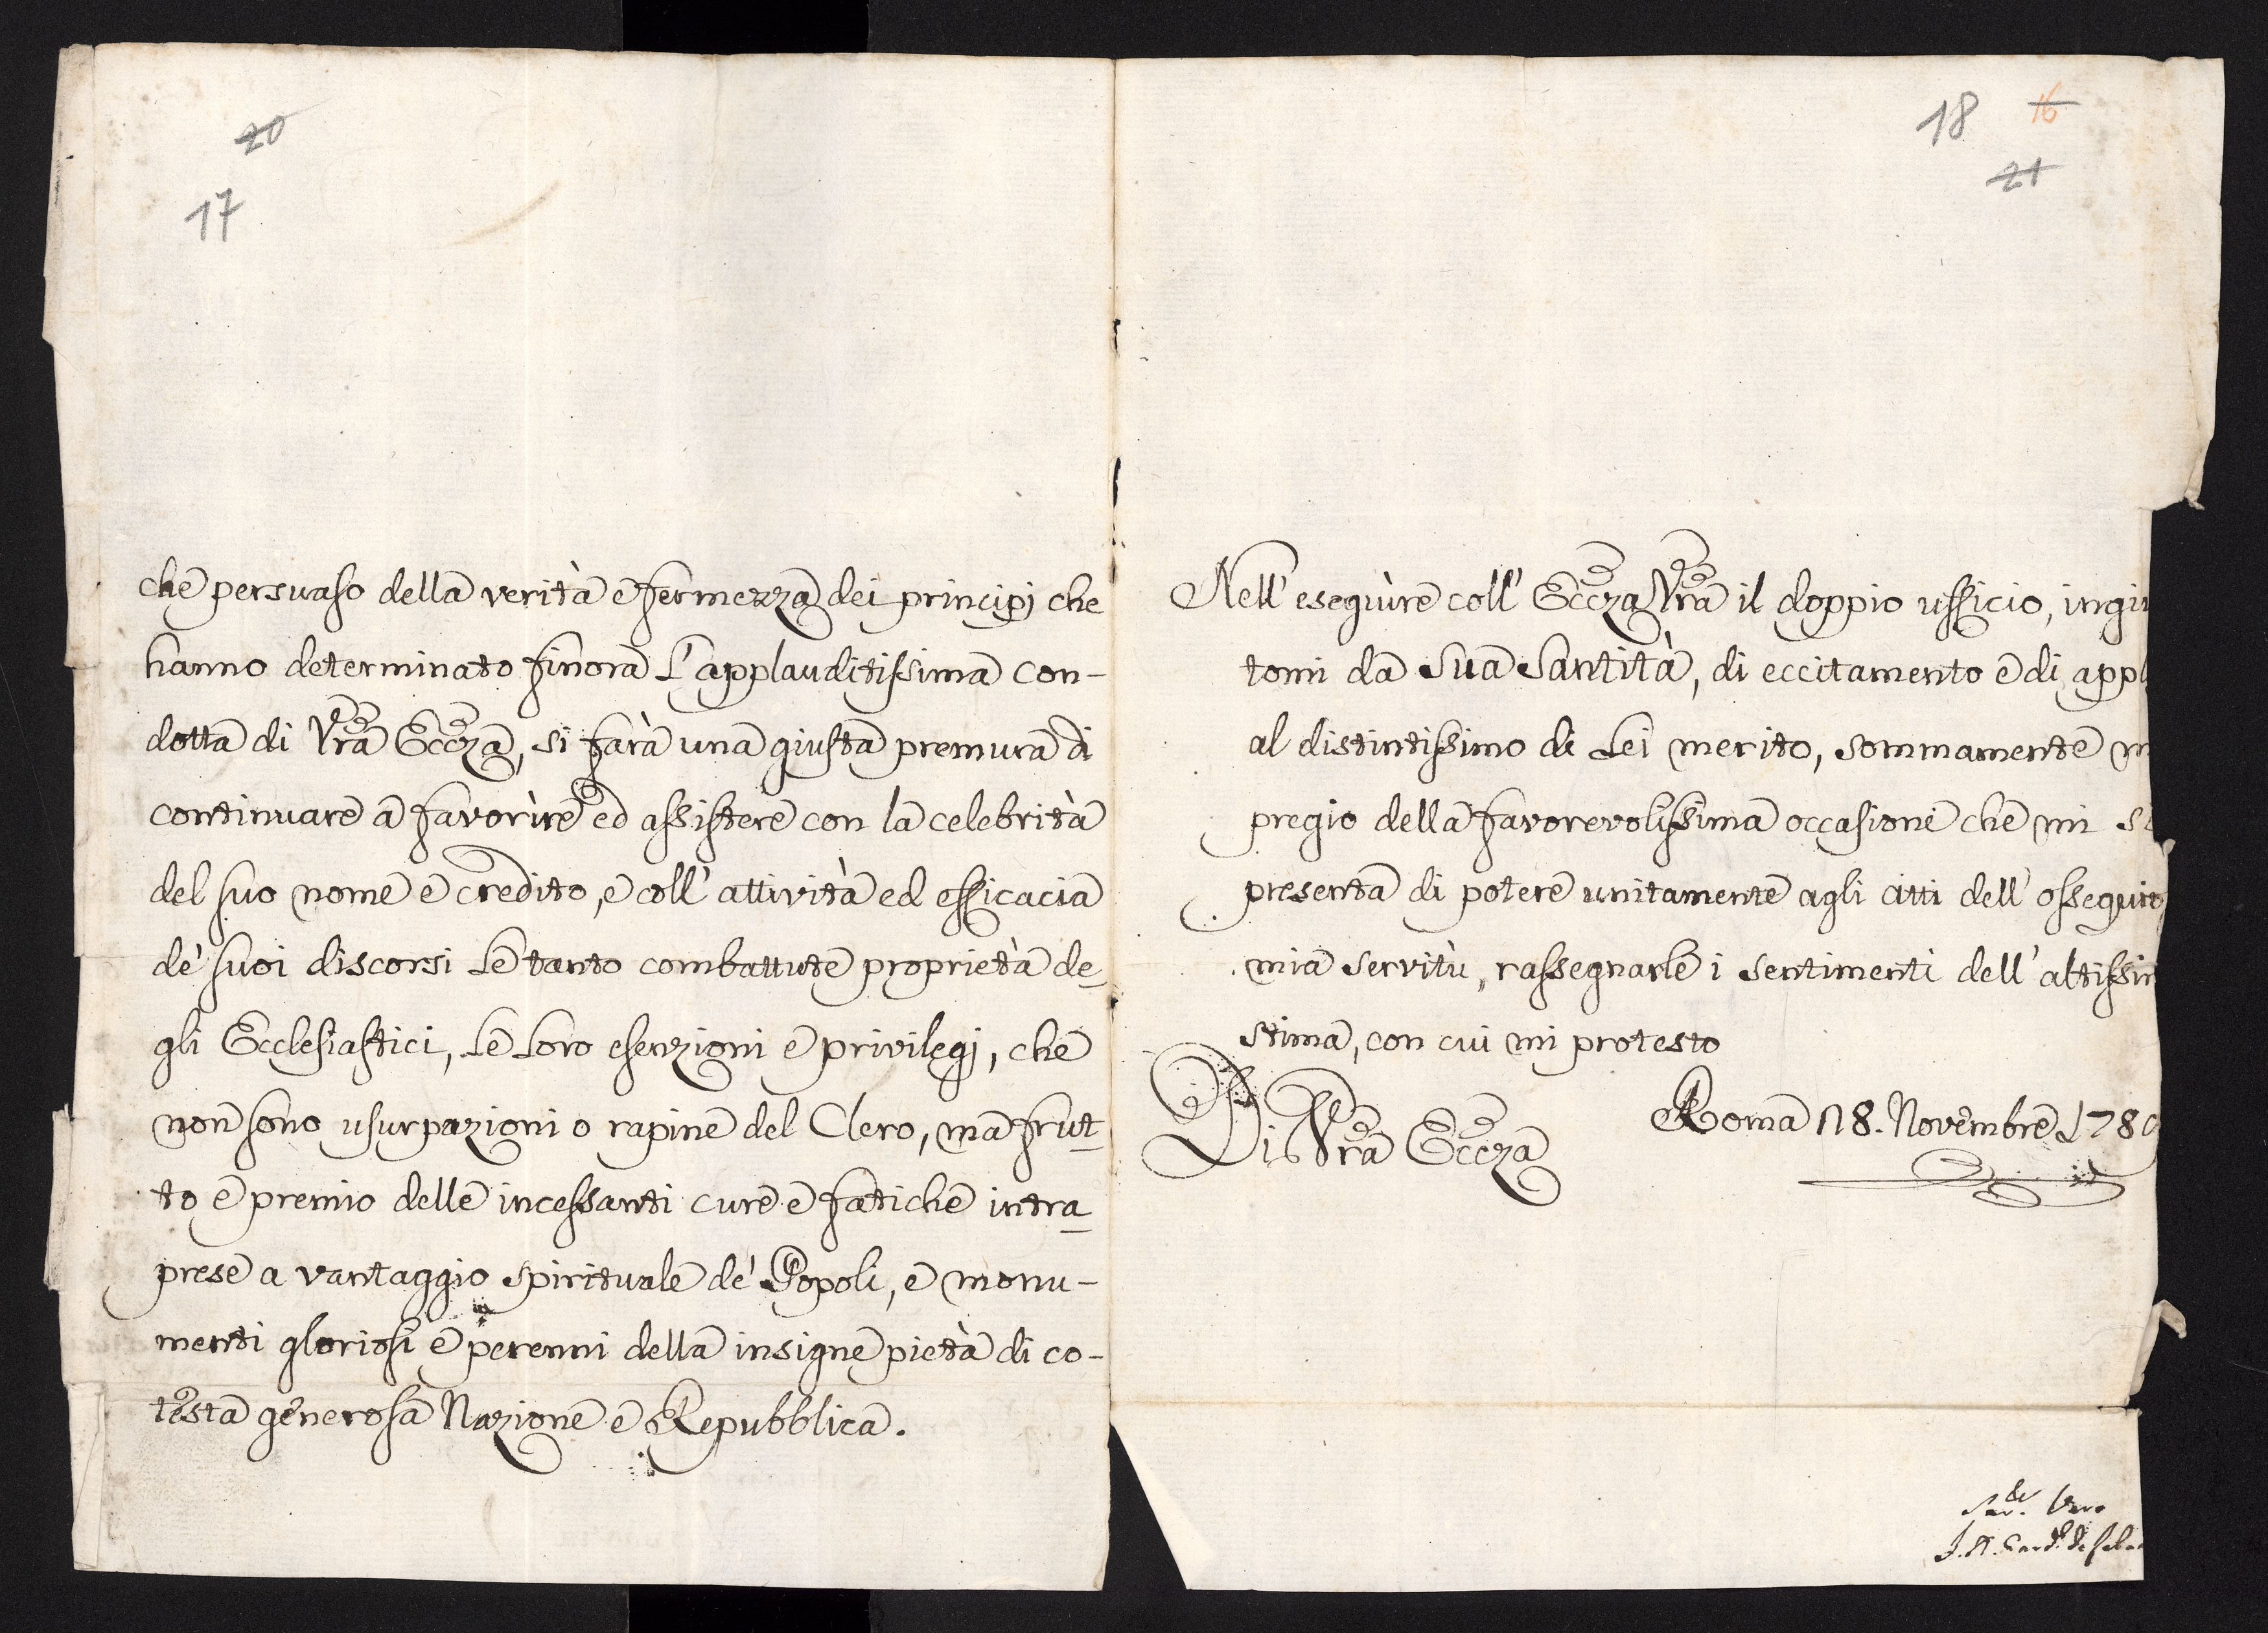 20
17
che persuaso della verità e fermezza dei principj che
hanno determinato finora l'applauditissima con-
dotta di Vra Eccza, si farà una giusta premura di
continuare a favorìre ed assistere con la celebrità
del suo nome e credito, e coll' attività ed efficacia
de' suoi discorsi le tanto combattute proprietà de-
gli Ecclesiastici, le loro esenzioni e privilegj, che
non sono usurpazioni o rapine del Clero, ma frut-
to e premio delle incessanti cure e fatiche intra-
prese a vantaggio spirituale de' Popoli, e monu-
menti gloriosi e perenni della insigne pietà di co-
testa generosa Nazione e Repubblica.
18 16
21
Nell' eseguìre coll' Eccza Vra il doppio ufficio, ingiu
tomi da Sua Santità, di eccitamento e di appl
al distintissimo di Lei merito, sommamente m
pregio della favorevolissima occasione che mi si
presenta di potere unitamente agli atti dell' ossequio
mia servitù, rassegnarle i sentimenti dell' altissim
stima, con cui mi protesto
Di Vra Eccza Roma 18. Novembre 178
Vero
Card.